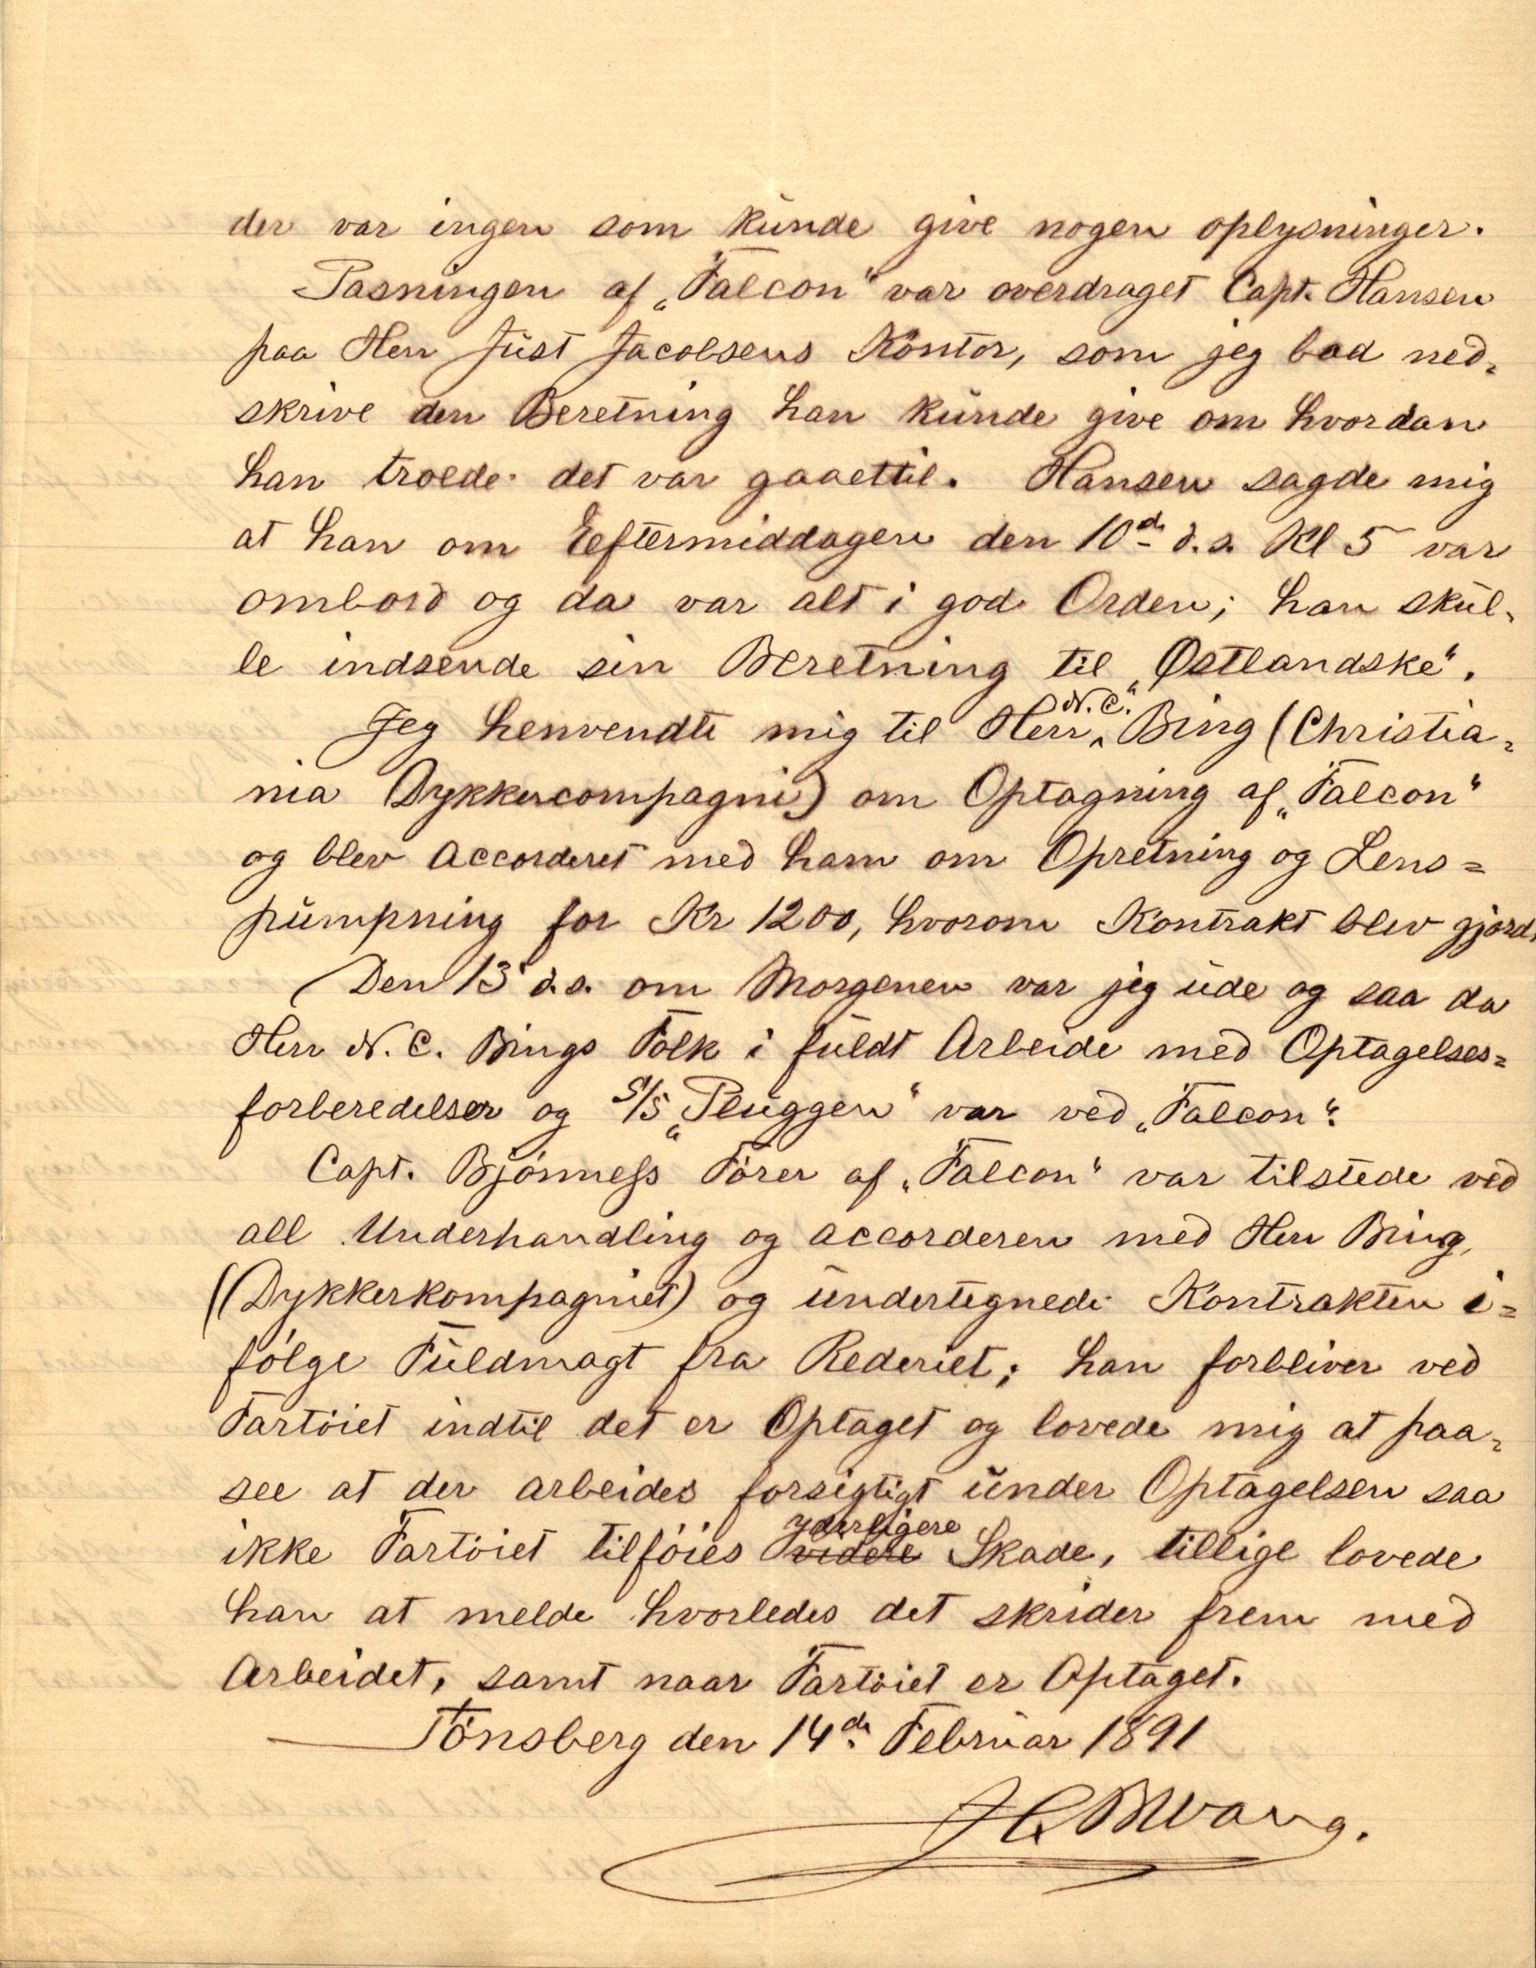 der var ingen som kunde give nogen oplysninger.
Pasningen af „Falcon“ var overdraget Capt. Hansen
paa Herr Just Jacobsens Kontor, som jeg bad ned-
skrive den Beretning han kunde give om hvordan
han troede det var gaaettil. Hansen sagde mig
at han om Eeftermiddagen den 10de d.s. Kl 5 var
ombord og da var alt i god Orden; han skul-
le indsende sin Beretning til „Østlandske“.
Jeg henvendte mig til Herr N.C. Bing (Christia-
nia Dykkercompagni) om Optagning af „Falcon“
og blev accorderet med ham om Opretning og Lens=
pumpning for Kr 1200, hvorom Kontrakt blev gjord.
Den 13 d.s. om Morgenen var jeg ude og saa da
Herr N. C. Bings Folk i fuldt Arbeide med Optagelses=
forberedelser og S/S „Pluggen“ var ved „Falcon“.
Capt. Bjønness Fører af „Falcon“ var tilstede ved
all Underhandling og accorderen med Herr Bing,
(Dykkerkompagniet) og undertegnede Kontrakten i=
følge Fuldmagt fra Rederiet; han forbliver ved
Fartøiet indtil det er Optaget og lovede mig at paa-
see at der arbeides forsigtigt under Optagelsen saa
ikke Fartøiet tilføies videre yderligere Skade, tillige lovede
han at melde hvorledes det skrider frem med
Arbeidet, samt naar Fartøiet er Optaget.
Tønsberg den 14de Februar 1891